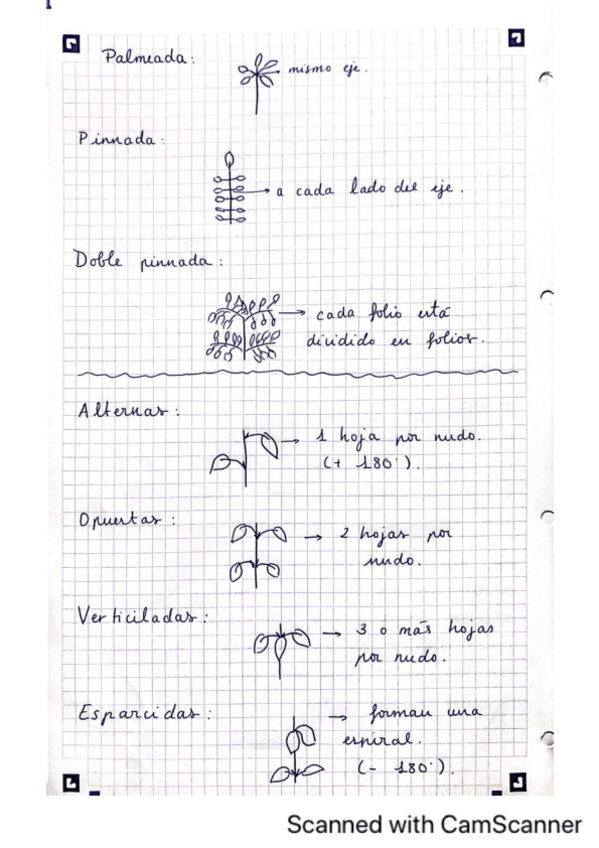 Palmeada:
mismo eje.
Pinnada:
a cada lado del eje.
Doble pinnada:
cada folio está
dividido en folios.
Alternas:
1 hoja por nudo.
(+ 180°).
Opuestas:
2 hojas por
nudo.
Verticiladas:
3 o más hojas
por nudo.
Esparcidas:
forman una
espiral.
(- 180°).
Scanned with CamScanner